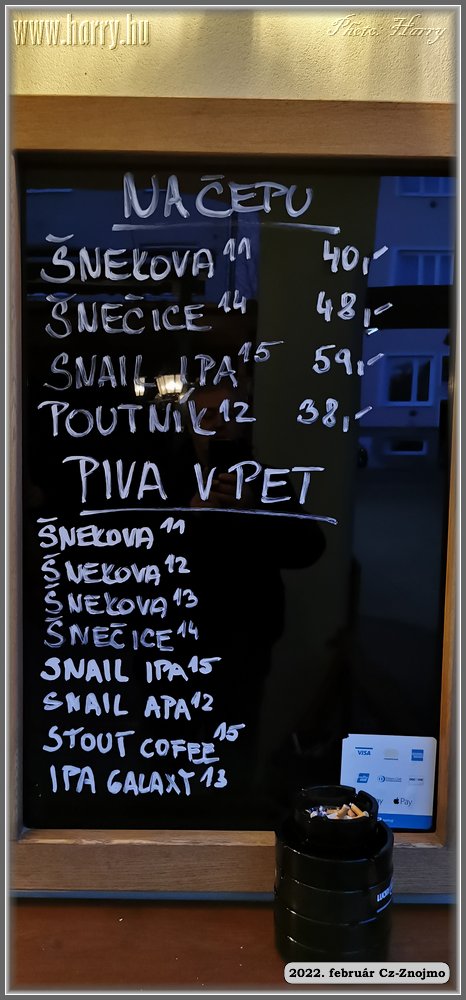 www.harry.hu
Photo: Harry
NA ČEPU
ŠNEKOVA 11 40,-
ŠNEČICE 14 48,-
SNAIL IPA 15 59,-
POUTNÍK 12 38,-
PIVA V PET
ŠNEKOVA 11
ŠNEKOVA 12
ŠNEKOVA 13
ŠNEČICE 14
SNAIL IPA 15
SNAIL APA 12
STOUT COFEE 15
IPA GALAXY 13
VISA
Pay
2022. február Cz-Znojmo